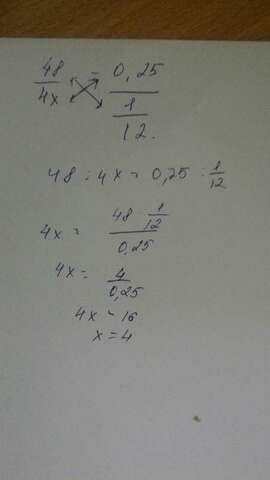 48/4x = 0,25/(1/12).
48 : 4x = 0,25 : 1/12
4x = (48 · 1/12)/0,25
4x = 4/0,25
4x = 16
x = 4